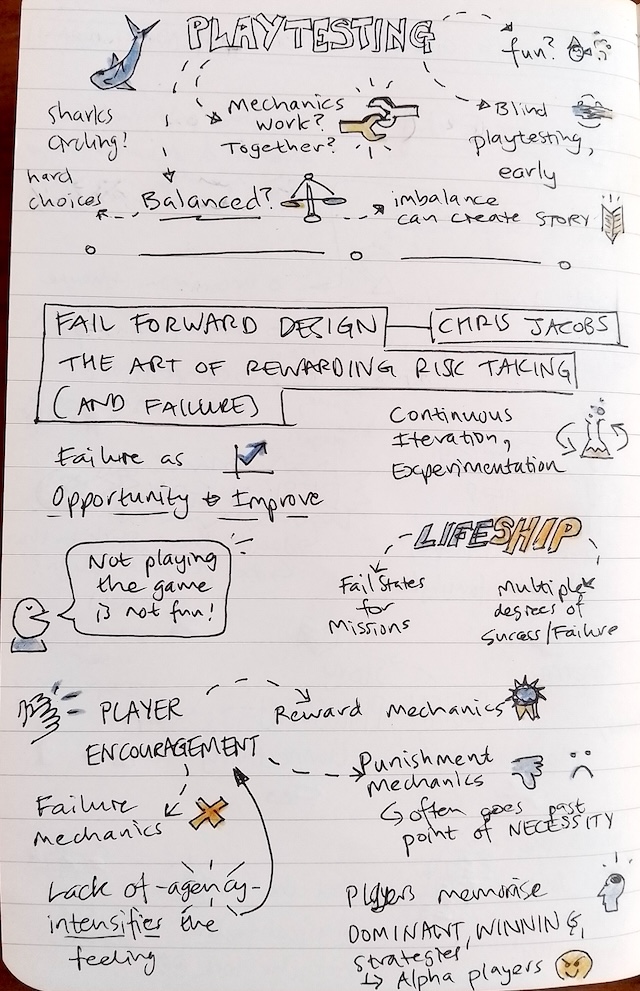 PLAYTESTING
fun?
sharks
circling!
Mechanics
work?
Together?
Blind
playtesting,
early
hard
choices
Balanced?
imbalance
can create STORY
FAIL FORWARD DESIGN
CHRIS JACOBS
THE ART OF REWARDING RISK TAKING
(AND FAILURE)
Continuous
Iteration,
Experimentation
Failure as
Opportunity to Improve
LIFESHIP
Not playing
the game
is not fun!
Fail States
for
Missions
Multiple
degrees of
Success/Failure
PLAYER
ENCOURAGEMENT
Reward mechanics
Punishment
mechanics
often goes past
point of NECESSITY
Failure
mechanics
Lack of -agency-
intensifies the
feeling
Players memorise
DOMINANT, WINNING,
strategies
Alpha players